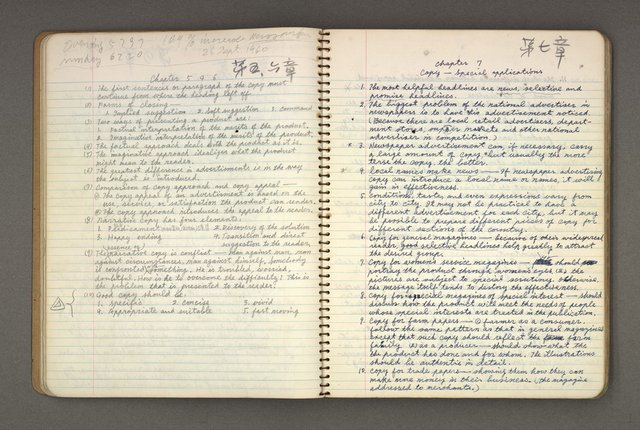 Evening 5797
Sunday 6220
28 Sept 1960
Chapter 5 & 6 第五、六章
(1) The first sentences or paragraph of the copy must
continue from where the heading left off.
(2) Forms of closing —
1. Implied suggestion 2. Soft suggestion 3. Command
(3) Two ways of presenting a product are:
1. Factual interpretation of the merits of the product.
2. Imaginative interpretation of the merits of the product.
(4) The factual approach deals with the product as it is.
(5) The imaginative approach idealizes what the product
might mean to the reader.
(6) The greatest difference in advertisements is in the way
the subject is introduced.
(7) Comparison of copy approach and copy appeal —
The copy appeal of an advertisement is based on the
use, service or satisfaction the product can render.
The copy approach introduces the appeal to the reader.
(8) Narrative copy has four elements:
1. Predicament 2. Discovery of the solution
3. Happy ending 4. Transition and direct
suggestion to the reader
(9) The narrative copy is conflict — man against man, man
against circumstances, man against himself. Somebody
is confronted by something. He is troubled, worried,
doubtful. How is he to overcome the difficulty? This is
the problem that is presented to the reader.
(10) Good copy should be:
1. specific 2. concise 3. vivid
4. Appropriate and suitable 5. fast moving
第七章
Chapter 7
Copy — Special applications
1. The most helpful headlines are news, selective and
promise headlines.
2. The biggest problem of the national advertiser in
newspapers is to have the advertisement noticed.
(Because there are local retail advertisers, depart-
ment stores, super markets and other national
advertiser in competition.)
* 3. Newspaper advertisement can, if necessary, carry
a large amount of copy, but usually the more
terse the copy, the better.
* 4. Local names make news — If newspaper advertising
copy can introduce a local name or names, it will
gain in effectiveness.
5. Conditions, taste, and even expressions vary from
city to city. It may not be practical to have a
different advertisement for each city, but it may
be possible to prepare different pieces of copy for
different sections of the country.
6. Copy for general magazines — because of their widespread
readers, good selective headlines help greatly to attract
the desired group.
7. Copy for women's service magazines — should
portray the product through women's eyes. As the
pictures are subject to special assortioning, otherwise,
the message itself tends to destroy the effectiveness.
8. Copy for special magazines of special interest — should
discuss how the product will meet the needs of people
whose special interests are treated in the publication.
9. Copy for farm papers — ① Farmer as a consumer —
follow the same pattern as that in general magazines
except that such copy should reflect the farm
family. ② as a producer — should show what the
the product has done and for whom. The illustrations
should be authentic in detail.
10. Copy for trade papers — showing them how they can
make more money in their business. (The magazine
addressed to merchants.)